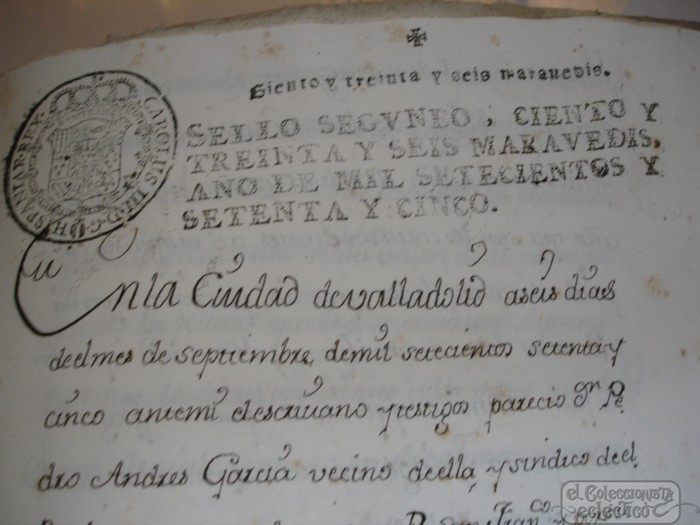 Ciento y treinta y seis maravedis.
SELLO SEGVNDO, CIENTO Y
TREINTA Y SEIS MARAVEDIS,
AÑO DE MIL SETECIENTOS Y
SETENTA Y CINCO.
CAROLUS III D.G. HISPANIAR. REX
En la Ciudad de valladolid a seis dias
deel mes de septiembre, de mil setecientos setenta y
cinco ante mi el escriuano y testigos parecio Dn Pe
dro Andres Garcia vecino de ella, y sindico deel
el Coleccionista
ecléctico